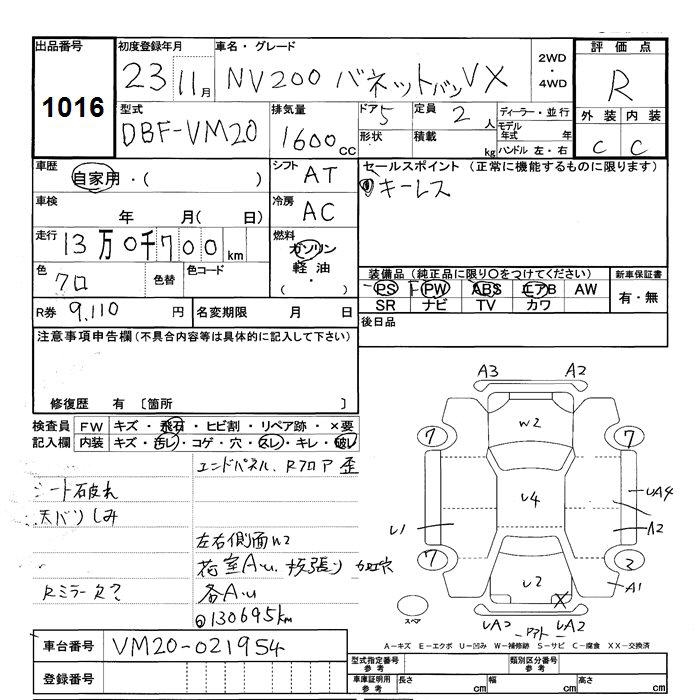 出品番号 初度登録年月 車名・グレード 2WD・4WD 評価点
1016 23 11月 NV200 バネットバンVX R
型式 排気量 ドア 5 定員 2人 ディーラー・並行 外装 内装
DBF-VM20 1600cc 形状 積載 kg モデル年式 年 ハンドル 左・右 C C
車歴 自家用・( ) シフト AT セールスポイント (正常に機能するものに限ります)
車検 年 月( 日) 冷房 AC キーレス
走行 13万0千700km 燃料 ガソリン 軽油 ( ・ )
色 クロ 色替 色コード 装備品(純正品に限り○をつけてください) 新車保証書
PS PW ABS エアB AW 有・無
SR ナビ TV カワ
R券 9,110円 名変期限 月 日 後日品
注意事項申告欄(不具合内容等は具体的に記入して下さい)
修復歴 有 [箇所 ]
検査員記入欄 FW キズ・飛石・ヒビ割・リペア跡・×要
内装 キズ・汚レ・コゲ・穴・スレ・キレ・破レ
エンドパネル、Rフロア 歪
シート破れ
天バリしみ
左右側面W2
荷室AU. 板張り
RミラーX? 各AU
130695km
A3 A2
7 W2 7
U4 UA4
U1 A2
7 U2 2
X A1
スペア UA2 UA2
A-キズ E-エクボ U-凹み W-補修跡 S-サビ C-腐食 XX-交換済
車台番号 VM20-021954
登録番号 型式指定番号 参考 類別区分番号 参考
車庫証明用 参考 長さ cm 幅 cm 高さ cm